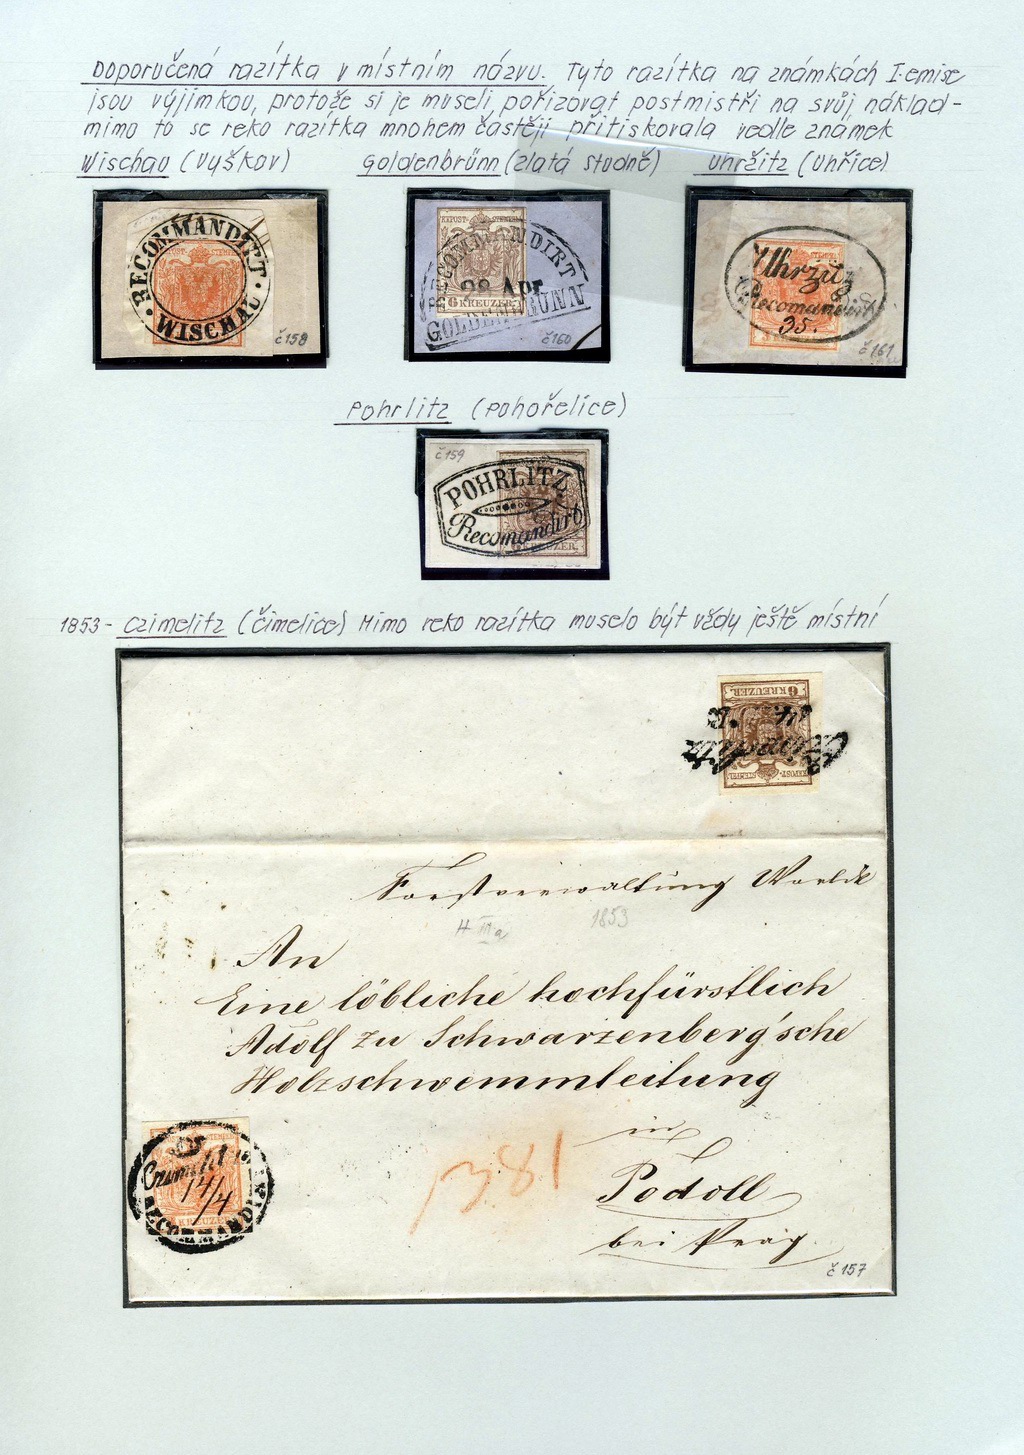 Doporučená razítka v místním názvu. Tyto razítka na známkách I.emise
jsou výjimkou, protože si je museli pořizovat postmistři na svůj náklad-
mimo to se reko razítka mnohem častěji přitiskovala vedle známek
Wischau (Vyškov) Goldenbrünn (Zlatá Studně) Uhržitz (Uhřice)
RECOMMANDIRT
WISCHAU
č158
RECOMMANDIRT
28 Apr
GOLDENBRUNN
6 KREUZER
č160
Uhržitz
Recomandirt
35.
č161
Pohrlitz (Pohořelice)
č159
POHRLITZ
Recomandirt
6 KREUZER
1853 - Czimelitz (Čimelice) Mimo reko razítka muselo být vždy ještě místní
6 KREUZER
Forstverwaltung Worlik
H IIIa 1853
An
Eine löbliche hochfürstlich
Adolf zu Schwarzenberg'sche
Holzschwemmleitung
in
Podoll
bei Prag
14/4
RECOMMANDIRT
KREUZER
č157